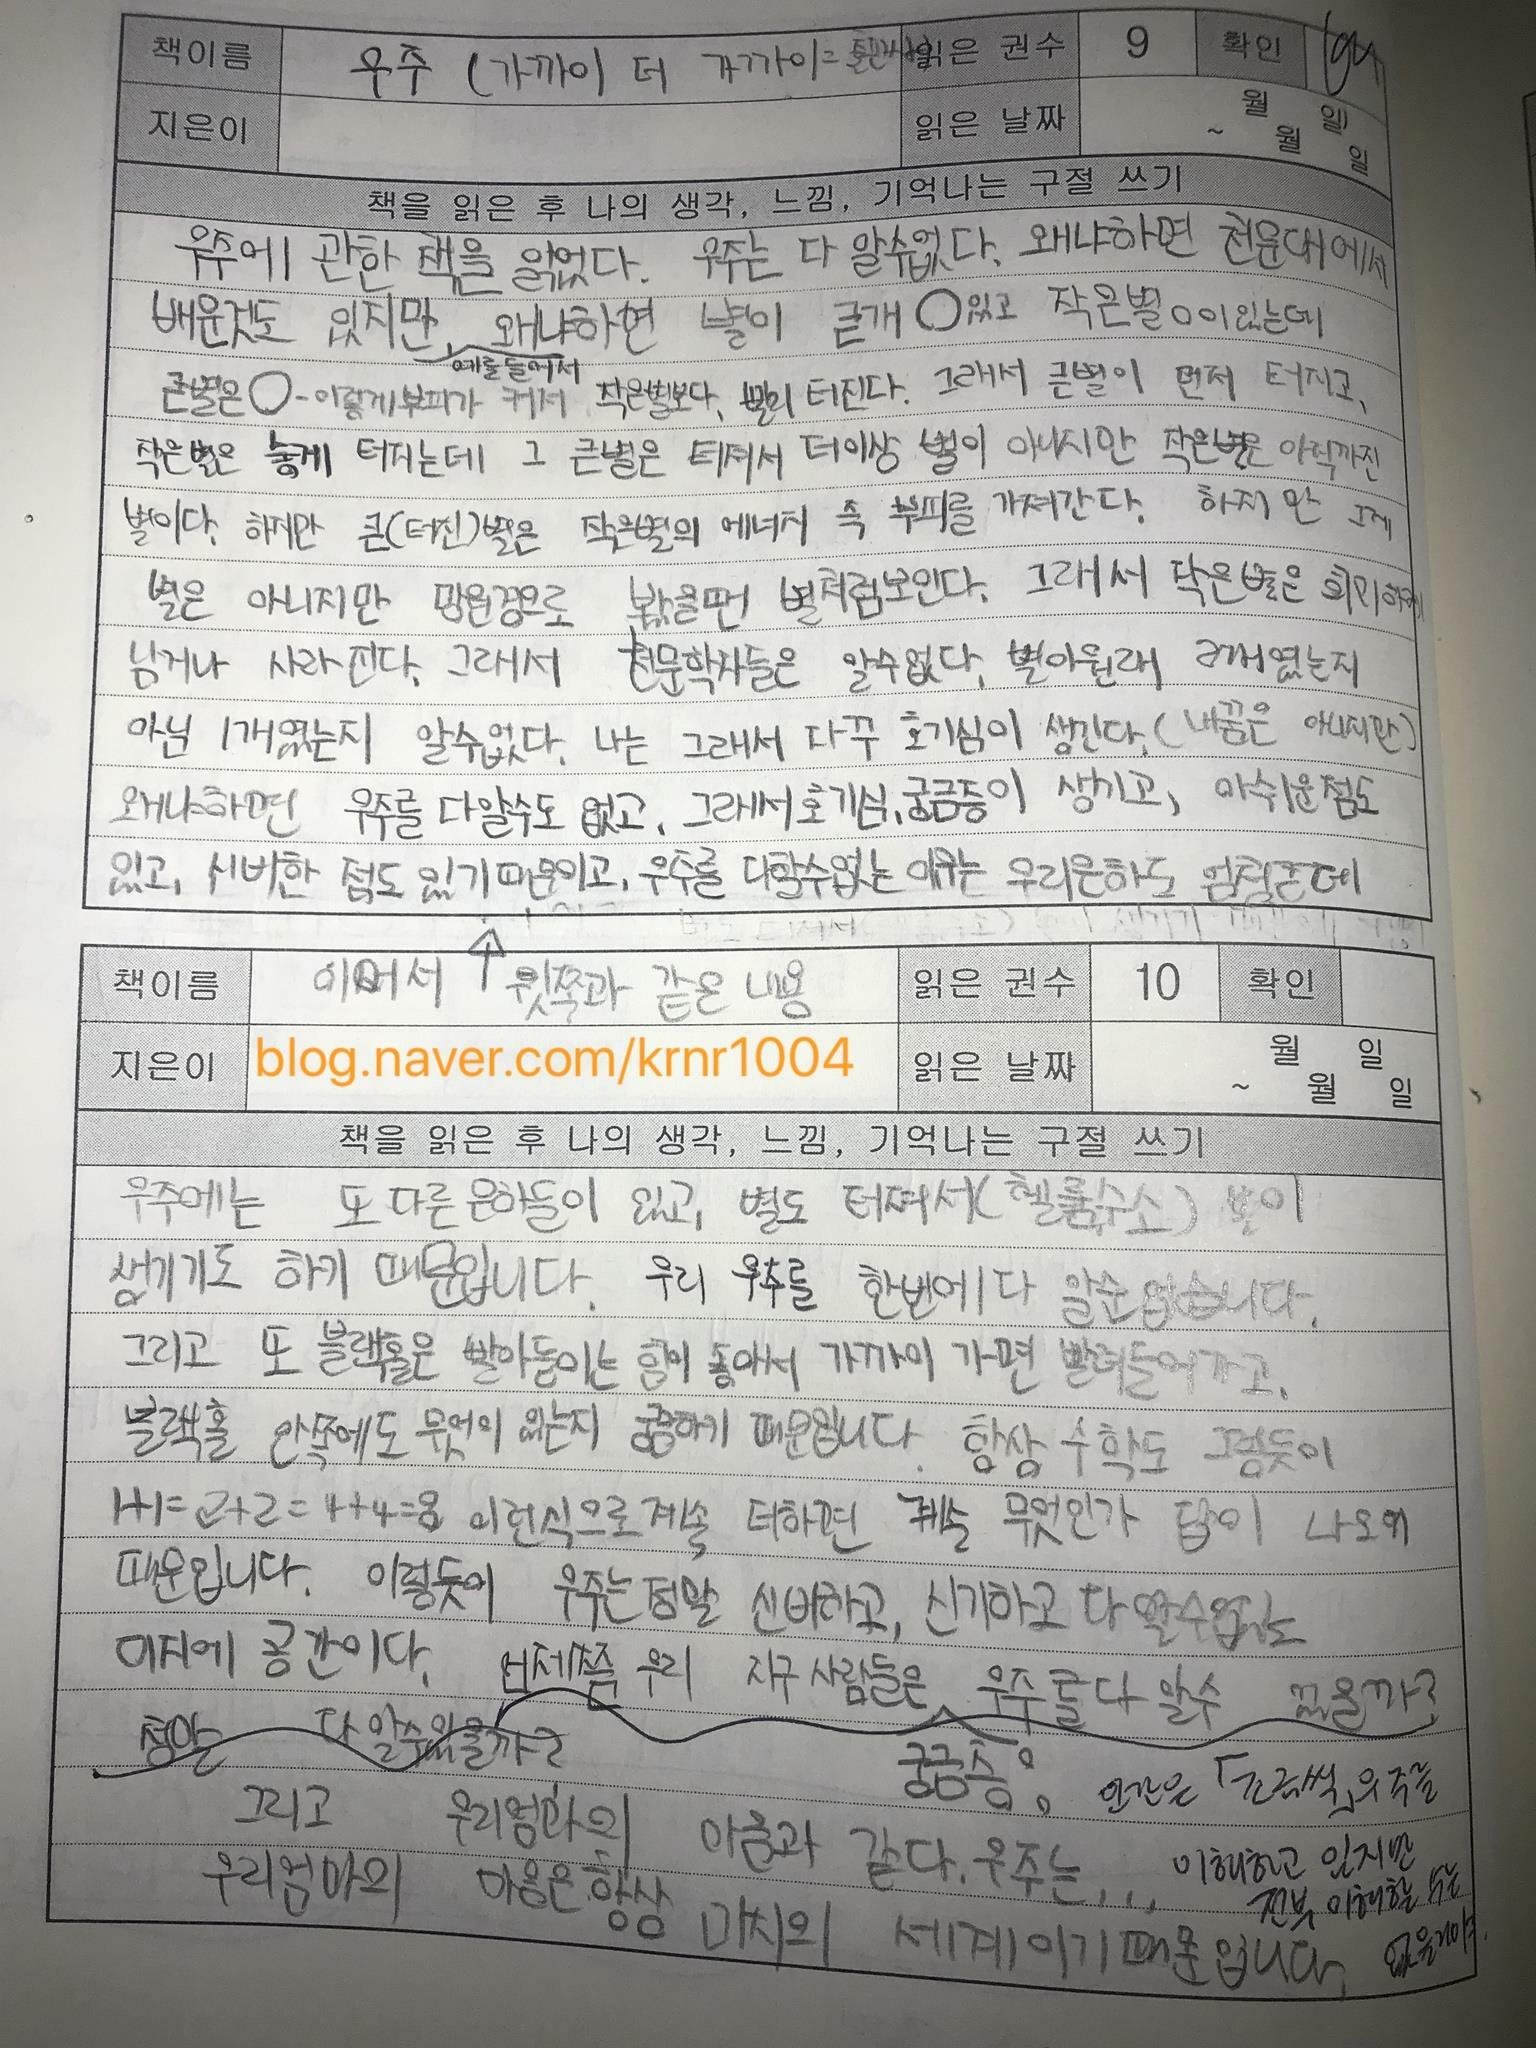 책이름 우주 (가까이 더 가까이= 읽은 권수 9 확인
지은이 읽은 날짜 월 일
~ 월 일
책을 읽은 후 나의 생각, 느낌, 기억나는 구절 쓰기
우주에 관한 책을 읽었다. 우주는 다 알수없다. 왜냐하면 천문대에서
배운것도 있지만, 왜냐하면 별이 큰개 ○있고 작은별○이있는데
예를들어서
큰별은 ○-이렇게부피가 커서 작은별보다, 빨리 터진다. 그래서 큰별이 먼저 터지고,
작은별은 늦게 터지는데 그 큰별은 터져서 더이상 별이 아니지만 작은별은 아직까진
별이다. 하지만 큰(터진)별은 작은별의 에너지 즉 부피를 가져간다. 하지만 그게
별은 아니지만 망원경으로 봤을땐 별처럼보인다. 그래서 작은별은 희미하게
남거나 사라진다. 그래서 천문학자들은 알수없다. 별아원래 2개였는지
아님 1개였는지 알수없다. 나는 그래서 다꾸 호기심이 생긴다. (내꿈은 아니지만)
왜냐하면 우주를 다알수도 없고, 그래서호기심,궁금증이 생기고, 아쉬운점도
있고, 신비한 점도 있기때문이고, 우주를 다알수없는 이유는 우리은하도 엄청큰데
책이름 이어서 ↑ 윗쪽과 같은 내용 읽은 권수 10 확인
지은이 blog.naver.com/krnr1004 읽은 날짜 월 일
~ 월 일
책을 읽은 후 나의 생각, 느낌, 기억나는 구절 쓰기
우주에는 또 다른 은하들이 있고, 별도 터져서(헬륨,수소) 별이
생기기도 하기 때문입니다. 우리 우주를 한번에다 알순없습니다.
그리고 또 블랙홀은 빨아들이는 힘이 좋아서 가까이 가면 빨려들어가고,
블랙홀 안쪽에도 무엇이 있는지 궁금하기 때문입니다. 항상 수학도 그렇듯이
1+1=2+2=4+4=8 이런식으로계속 더하면 계속 무엇인가 답이 나오기
때문입니다. 이렇듯이 우주는정말 신비하고, 신기하고 다 알수없는
미지에 공간이다. 언제쯤 우리 지구 사람들은 우주를다 알수 있을까?
정말 다 알수있을까?
궁금증
그리고 우리엄마의 마음과 같다. 우주는...
우리엄마의 마음은 항상 미지의 세계이기때문입니다.
인간은 「조금씩」 우주를
이해하고 있지만
전부 이해할 수는
없을거야.